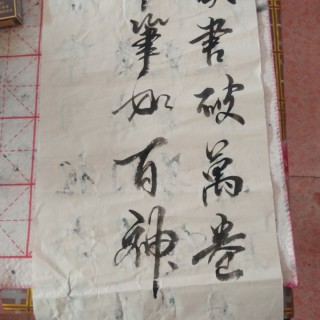 書破萬卷
筆如有神